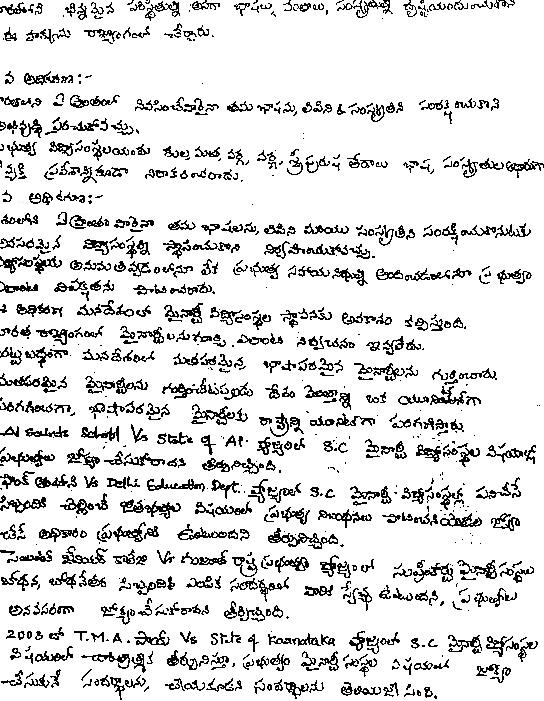 భిన్నమైన పరిస్థితుల్ని భాషలు, సంస్కృతుల్ని దృష్టియందుంచుకొని
ఈ హక్కును రాజ్యాంగంలో చేర్చారు.
వ అధికరణ:-
ఏ ప్రాంతంలో నివసించేవారైనా తమ భాషను, లిపిని & సంస్కృతిని సంరక్షించుకొని
అభివృద్ధి పరచుకోవచ్చు.
ప్రభుత్వ విద్యాసంస్థలయందు కుల, మత, వర్గ, వర్ణ, స్త్రీపురుష తేడాలు భాష, సంస్కృతుల ఆధారంగా
వ్యక్తి ప్రవేశాన్నికూడా నిరాకరించరాదు.
వ అధికరణ:-
ఏ ప్రాంతం వారైనా తమ భాషలను, లిపిని మరియు సంస్కృతిని సంరక్షించుకొనుటకు
అవసరమైన విద్యాసంస్థల్ని స్థాపించుకొని నిర్వహించుకోవచ్చు.
విద్యాసంస్థలకు అనుమతివ్వడంలోనూ లేక ప్రభుత్వ సహాయనిధుల్ని అందించడంలోనూ ప్రభుత్వం
ఎలాంటి వివక్షతను చూపించరాదు.
ఈ అధికరణ మనదేశంలో మైనార్టీ విద్యాసంస్థల స్థాపనకు అవకాశం కల్పిస్తుంది.
భారత రాజ్యాంగంలో మైనార్టీలను గూర్చి ఎలాంటి నిర్వచనం ఇవ్వలేదు.
చట్టబద్ధంగా మనదేశంలో మతపరమైన, భాషాపరమైన మైనార్టీలను గుర్తించారు.
మతపరమైన మైనార్టీలను గుర్తించేటప్పుడు దేశం మొత్తాన్ని ఒక యూనిట్‌గా
పరిగణించగా, భాషాపరమైన మైనార్టీలకు రాష్ట్రాన్ని యూనిట్‌గా పరిగణిస్తారు
Vs State of AP వ్యాజ్యంలో S.C మైనార్టీ విద్యాసంస్థల విషయాల్లో
ప్రభుత్వాలు జోక్యం చేసుకోరాదని తీర్పునిచ్చింది.
Vs Delhi Education Dept. వ్యాజ్యంలో S.C మైనార్టీ విద్యాసంస్థల్లో పనిచేసే
సిబ్బందికి చెల్లించే జీతభత్యాల విషయంలో ప్రభుత్వ నిబంధనలు పాటించకపోతే జోక్యం
చేసే అధికారం ప్రభుత్వానికి ఉంటుందని తీర్పునిచ్చింది.
కాలేజి Vs గుజరాత్ రాష్ట్ర ప్రభుత్వం వ్యాజ్యంలో సుప్రీంకోర్టు మైనార్టీ సంస్థలు
బోధన, బోధనేతర సిబ్బందిని ఎంపిక సందర్భంలో వారికి స్వేచ్ఛ ఉంటుందని, ప్రభుత్వాలు
అనవసరంగా జోక్యంచేసుకోరాదని తీర్పిచ్చింది.
2003 లో T.M.A. పాయ్ Vs State of Karnataka వ్యాజ్యంలో S.C మైనార్టీ విద్యాసంస్థల
విషయంలో చారిత్రాత్మక తీర్పునిస్తూ, ప్రభుత్వం మైనార్టీ సంస్థల విషయంలో జోక్యం
చేసుకునే సందర్భాలను, చేయకూడని సందర్భాలను తెలియజేసింది.